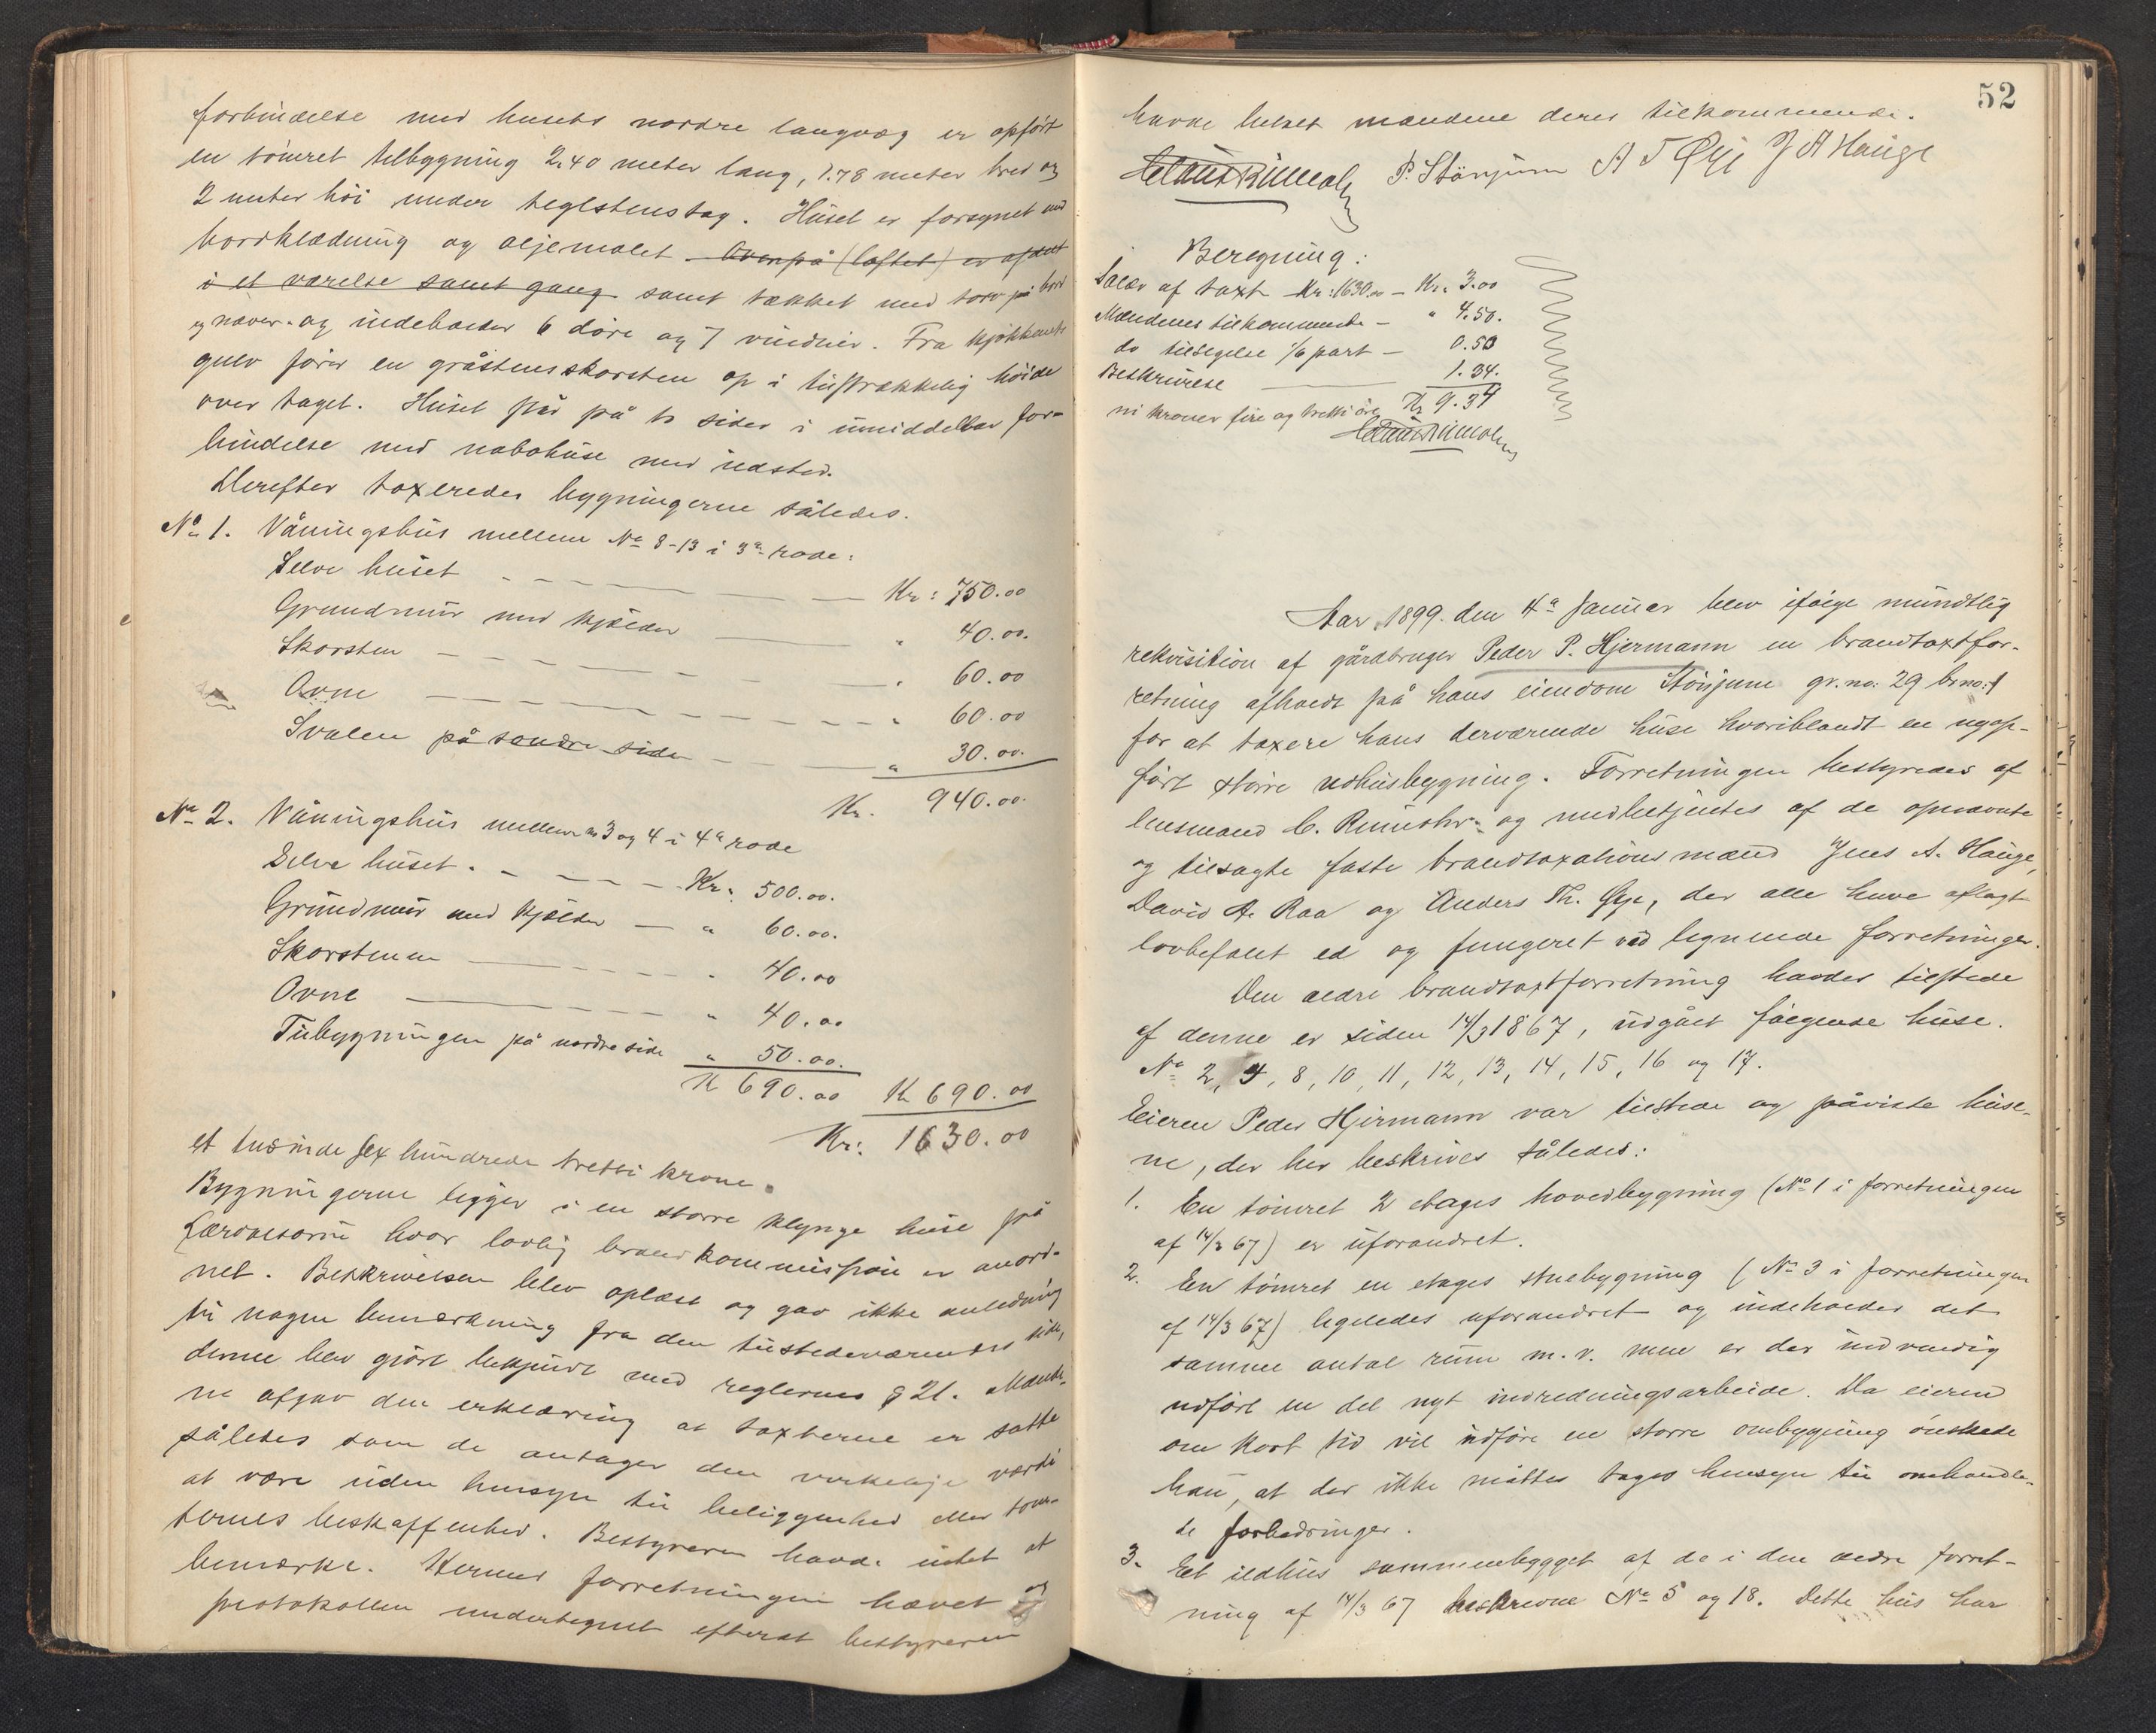 forbindelse med husets nordre langvæg er opført
en tömret tilbygning 2.40 meter lang, 1.78 meter bred og
2 meter höi under teglstenstag. Huset er forsynet med
bordklædning og oljemalet. Ovenpå (loftet) er afdelt
i et værelse samt gang samt tækket med torv på bord
og næver. og indeholder 6 döre og 7 vinduer. Fra kjøkkenets
gulv förer en gråstensskorsten op i tilstrækkelig höide
over taget. Huset står på to sider i umiddelbar for-
bindelse med nabohuse med ildsted.
Derefter taxeredes bygningerne således.
No 1. Våningshus mellem No 8-13 i 3die rode:
Selve huset Kr: 750.00
Grundmur med kjælder " 40.00.
Skorsten " 60.00
Ovne " 60.00
Svalen på söndre side " 30.00.
Kr. 940.00.
No 2. Våningshus mellem no 3 og 4 i 4de rode
Selve huset. Kr. 500.00.
Grundmur med kjælder " 60.00.
Skorstenen " 40.00
Ovne " 40.00
Tilbygningen på nordre side " 50.00.
Kr 690.00 Kr 690.00
Kr: 1630.00
et tusinde sex hundrede tretti krone.
Bygningerne ligger i en större klynge huse på
Lærdalsören hvor lovlig brandkommission er anord-
net. Beskrivelsen blev oplæst og gav ikke anledning
til nogen bemærkning fra den tilstedeværendes side,
denne blev gjort bekjendt med reglernes § 21. Mænde-
ne afgav den erklæring at taxterne er satte
således som de antager den virkelige værdi
at være uden hensyn til beliggenhed eller tom-
ternes beskaffenhed. Bestyreren havde intet at
bemærke. Hermed forretningen hævet og
protokollen undertegnet efterat bestyreren
52
havde betalt mændene deres tilkommende.
P. Stönjum A T Øije J A Hauge
Beregning:
Salær af taxt Kr: 1630.00 – Kr. 3.00
Mændenes tilkommende – " 4.50.
do tilsigelse 1/6 part – 0.50
Beskrivelse 1.34.
ni kroner fire og tretti öre Kr 9.34
Aar 1899. den 4de Januar blev ifölge mundtlig
rekvisition af gårdbruger Peder P. Hjermann en brandtaxtfor-
retning afholdt på hans eiendom Stönjum gr.no: 29 br.no: 1
for at taxere hans derværende huse hvoriblandt en nyop-
fört större udhusbygning. Forretningen bestyredes af
lensmand C. Rumohr og medbetjentes af de opnævnte
og tilsagte faste brandtaxationsmænd Jens A. Hauge,
David A. Raa og Anders Th. Øije, der alle have aflagt
lovbefalet ed og fungeret ved lignende forretninger.
Den ældre brandtaxtforretning havdes tilstede
af denne er siden 14/3 1867, udgået fölgende huse.
No 2, 4, 8, 10, 11, 12, 13, 14, 15, 16 og 17.
Eieren Peder Hjermann var tilstede og påviste huse-
ne, der her beskrives således:
1. En tömret 2 etages hovedbygning (No 1 i forretningen
af 14/3 67) er uforandret.
2. En tömret en etages stuebygning (No 3 i forretningen
af 14/3 67) ligeledes uforandret og indeholder det
samme antal rum m.v. men er der indvendig
udfört en del nyt indredningsarbeide. Da eieren
om kort tid vil udföre en större ombygning önskede
han, at der ikke måttes tages hensyn til omhandle-
de forbedringer.
3. Et ildhus sammenbygget af de i den ældre forret-
ning af 14/3 67 beskrevne No 5 og 18. Dette hus har